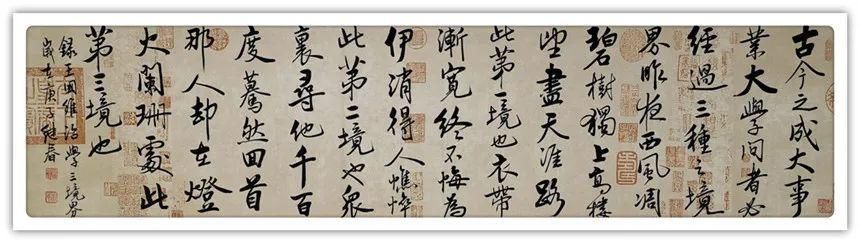 古今之成大事
業大學問者必
經過三種之境
界昨夜西風凋
碧樹獨上高樓
望盡天涯路
此第一境也衣帶
漸寬終不悔為
伊消得人憔悴
此第二境也眾
裏尋他千百
度驀然回首
那人却在燈
火闌珊處此
第三境也
錄王國維治學三境界
歲在庚子